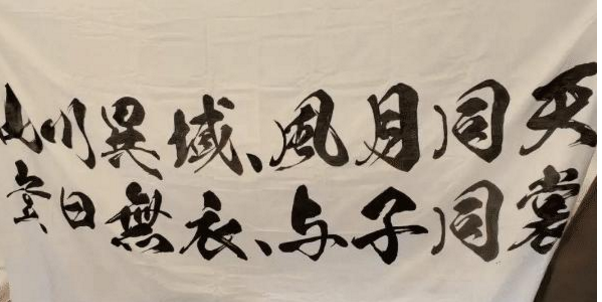 山川異域、風月同天
豈曰無衣、与子同裳